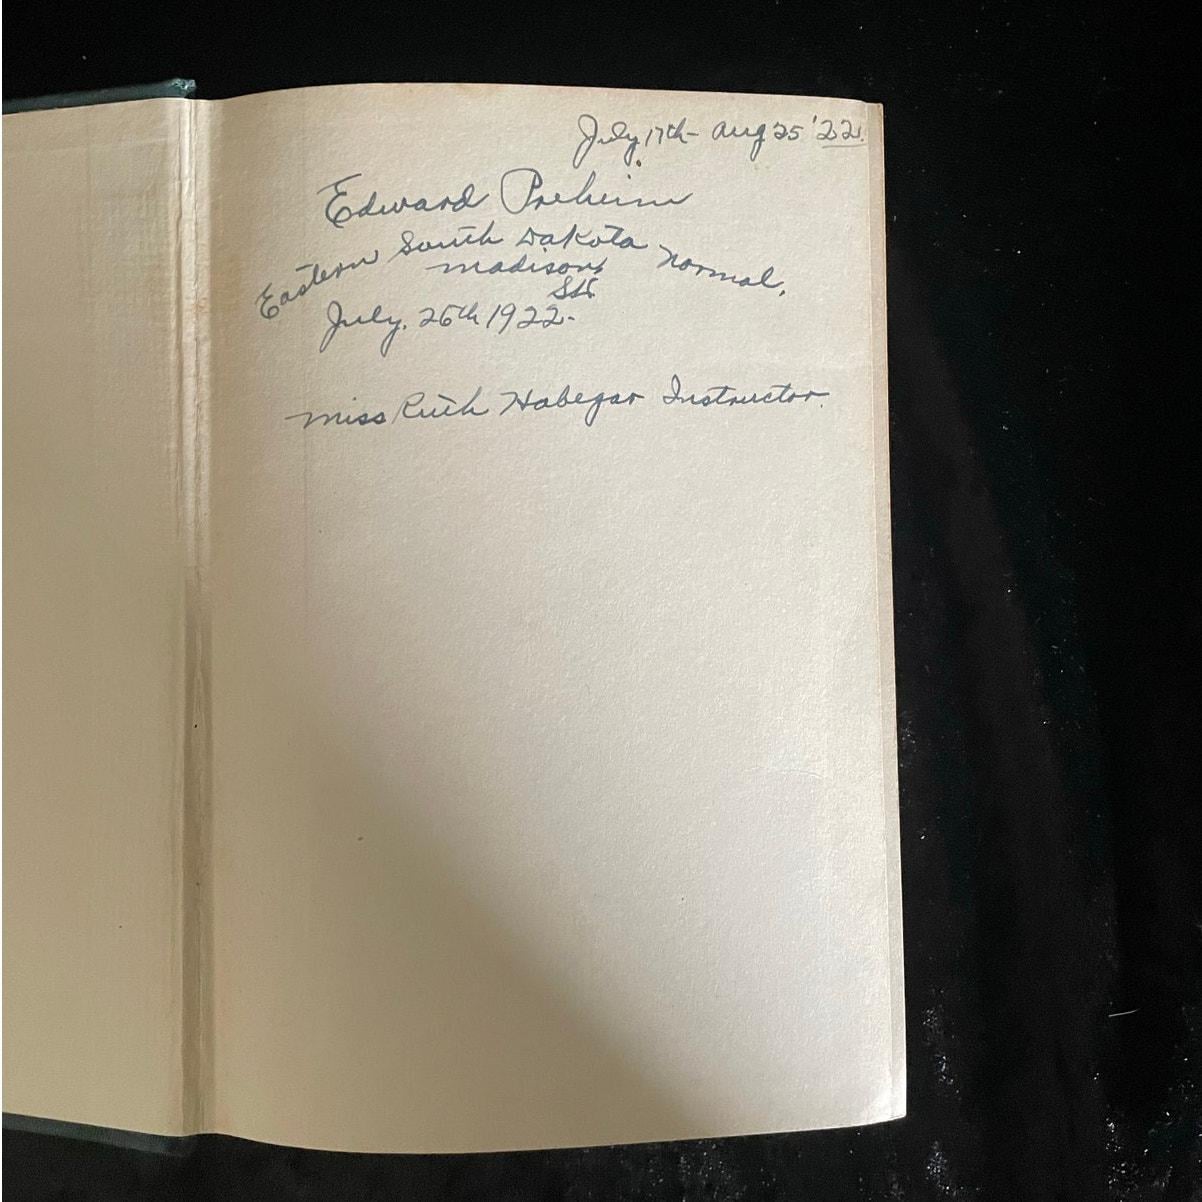 July 17th - Aug 25 '22.
Edward Preheim
Eastern South Dakota Normal,
Madison,
S.D.
July. 26th 1922-
Miss Ruth Habegar Instructor.